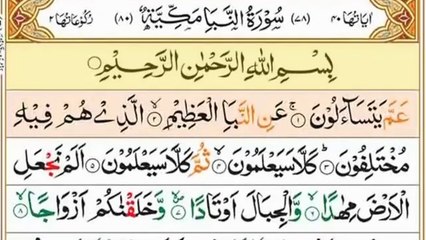 اٰيَاتُهَا ٤٠ (٧٨) سُوْرَةُ النَّبَاِ مَكِّيَّةٌ (٨٠) رُكُوْعَاتُهَا ٢
بِسْمِ اللّٰهِ الرَّحْمٰنِ الرَّحِيْمِ
عَمَّ يَتَسَآءَلُوْنَ ۝١ عَنِ النَّبَاِ الْعَظِيْمِ ۝٢ الَّذِيْ هُمْ فِيْهِ
مُخْتَلِفُوْنَ ۝٣ كَلَّا سَيَعْلَمُوْنَ ۝٤ ثُمَّ كَلَّا سَيَعْلَمُوْنَ ۝٥ اَلَمْ نَجْعَلِ
الْاَرْضَ مِهٰدًا ۝٦ وَّالْجِبَالَ اَوْتَادًا ۝٧ وَّخَلَقْنٰكُمْ اَزْوَاجًا ۝٨